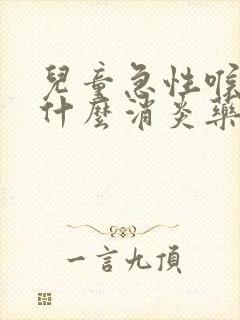 兒童急性喉
什麼消炎藥
一言九頂